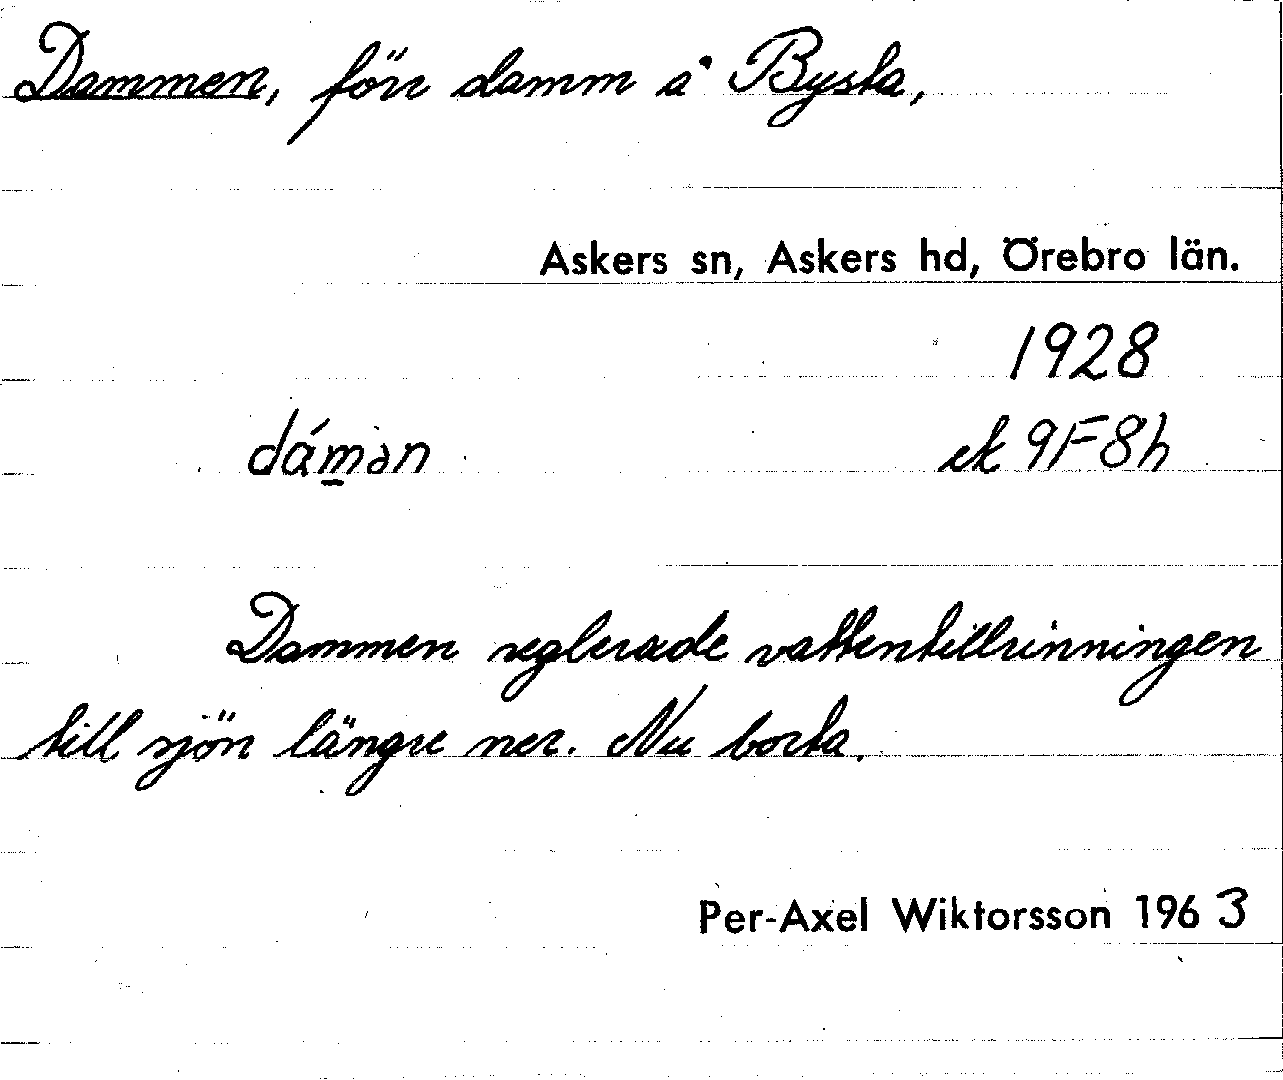 Dammen, förr damm å Bysta,
Askers sn, Askers hd, Örebro län.
1928
dáman ek 9F8h
Dammen reglerade vattentillrinningen
till sjön längre ner. Nu borta.
Per-Axel Wiktorsson 1963